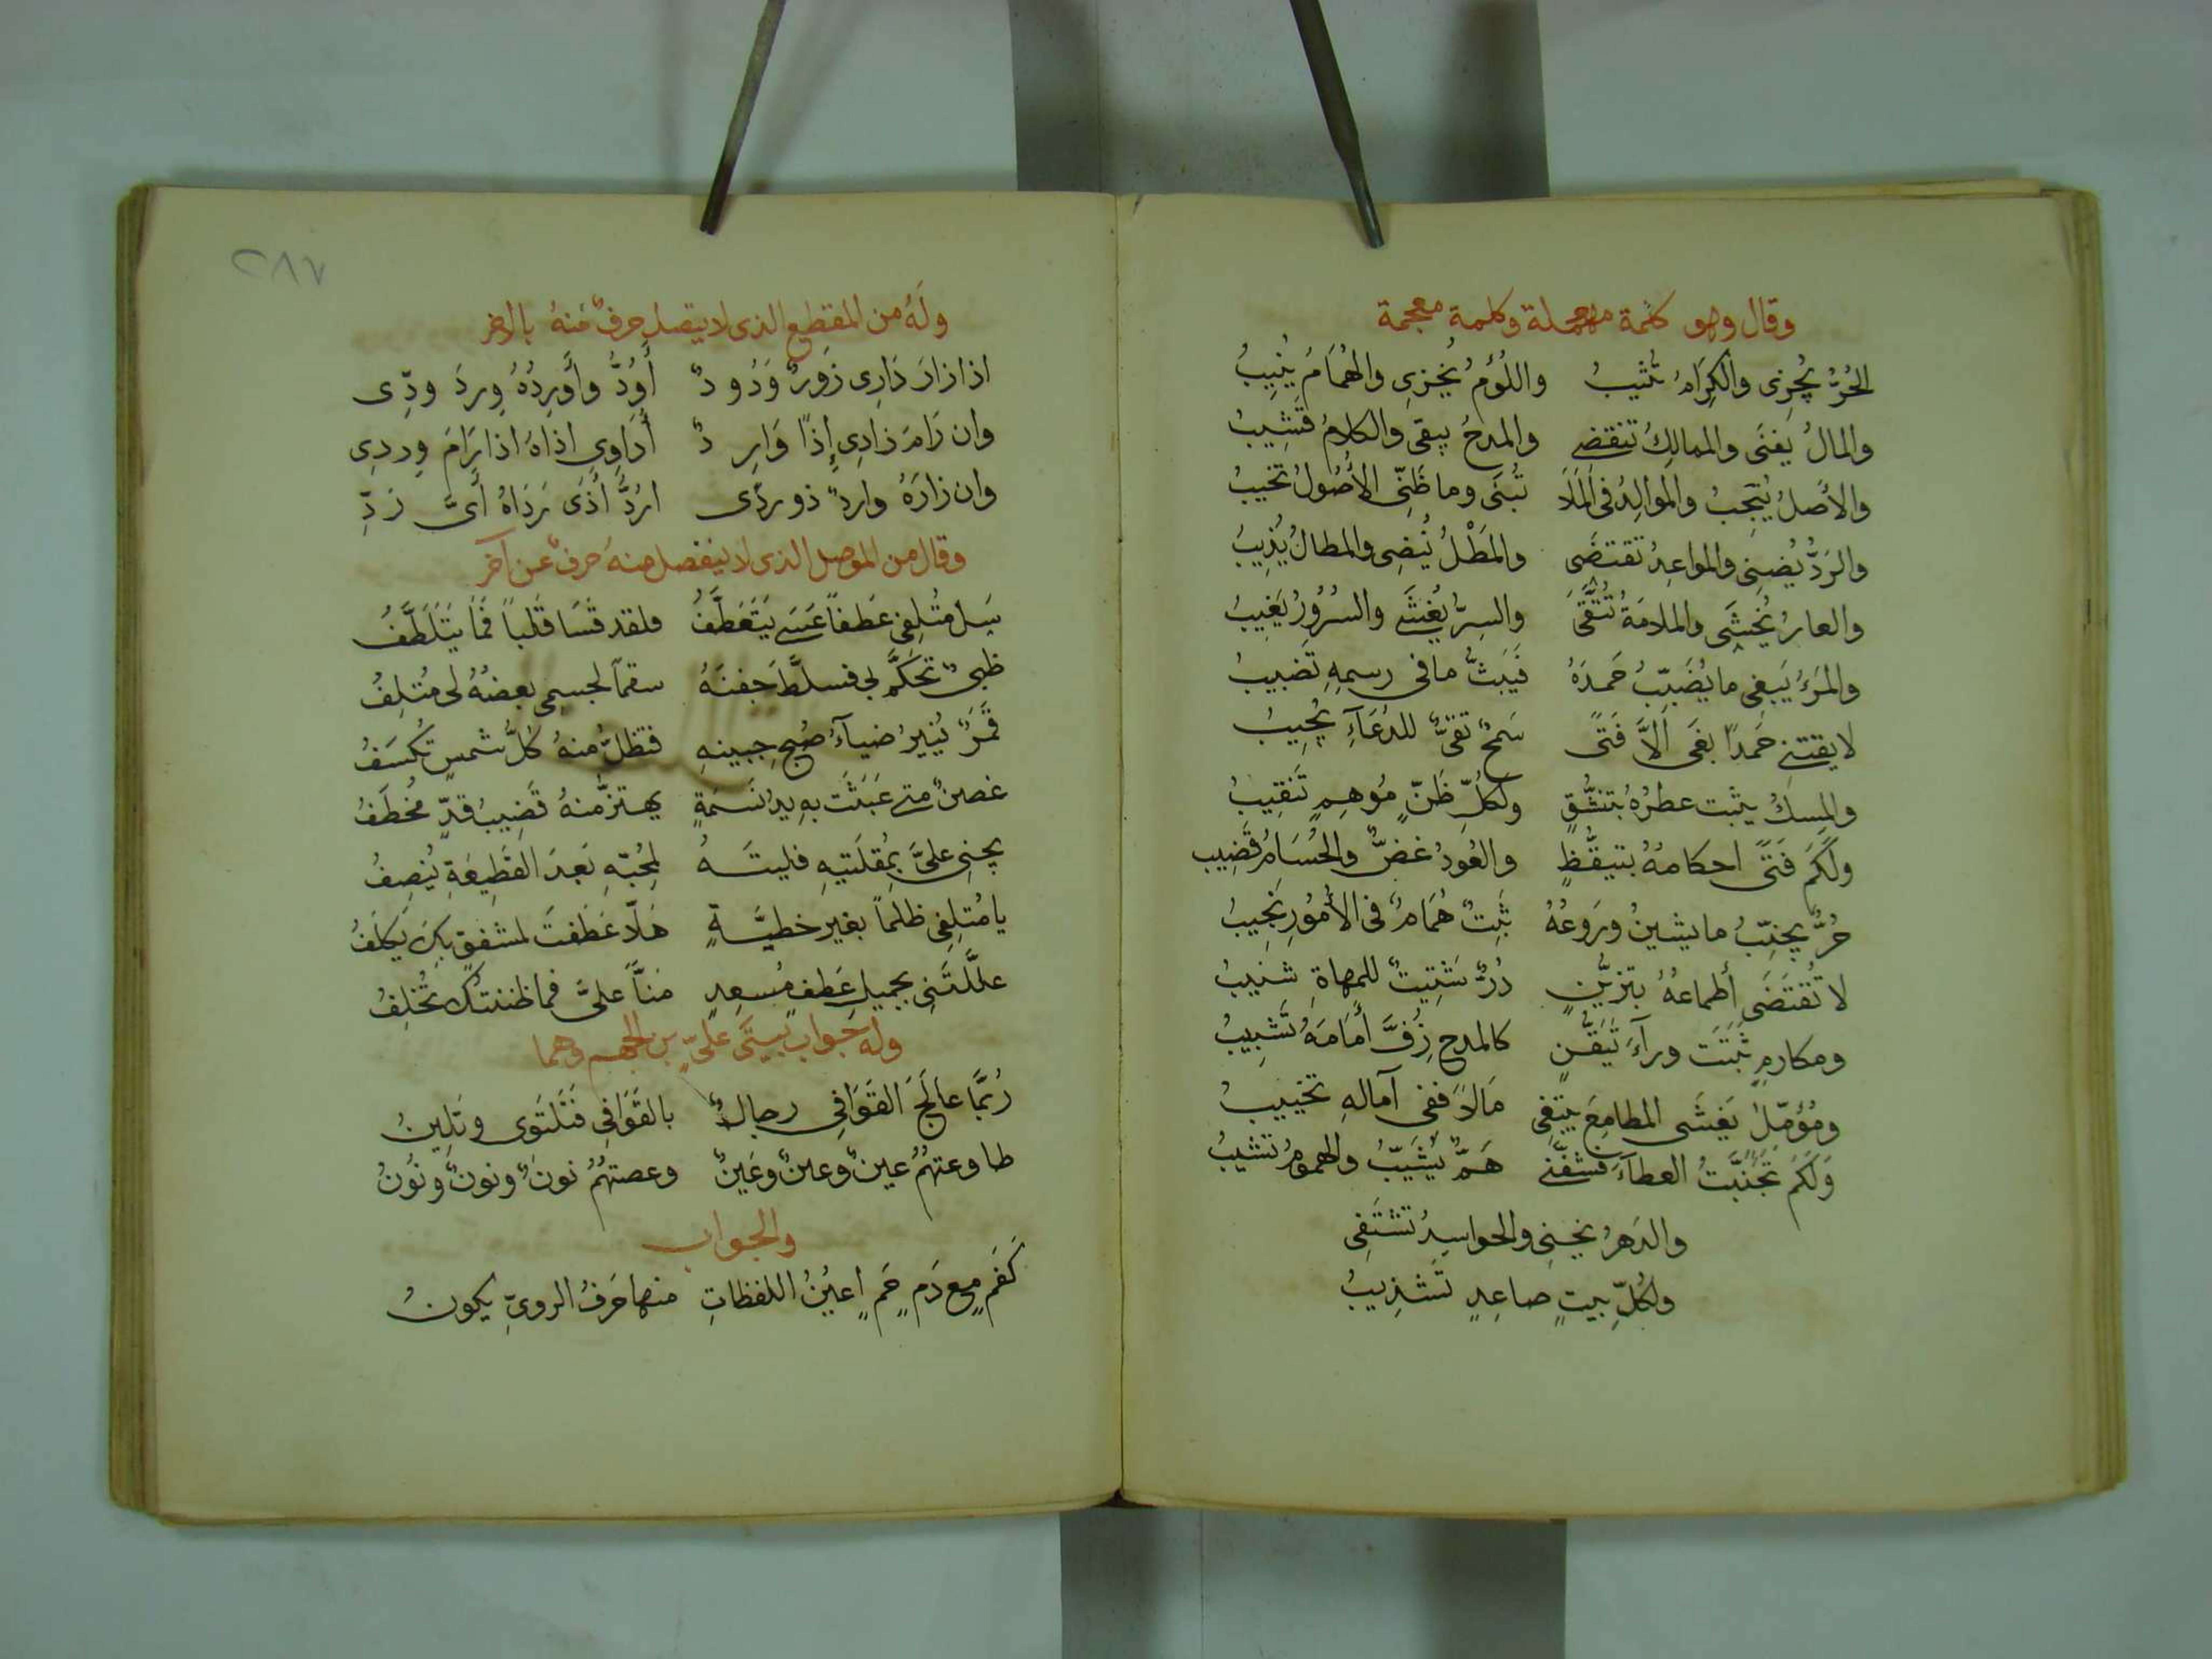 وقال وهو كلمة مهملة وكلمة معجمة
الحُرُّ يُجزِى والكِرَامُ تُثيبُ واللُؤمُ يُخزِى والهُمَامُ يُنِيبُ
والمالُ يَفنَى والممالِكُ تنقضى والمدحُ يبقى والكلامُ قَشِيبُ
والأصلُ يُنجِبُ والموالِدُ فى المَلَا تُبنَى وما ظَنِّى الأُصُولُ تخيبُ
والرَدُّ يُضِنى والمواعِدُ تقتضَى والمَطْلُ يُنضِى والمطالُ يُذِيبُ
والعارُ يُخشَى والملامَةُ تُتَّقَى والسِرُّ يُفشَى والسُرُوُرُ يَغِيبُ
والمَرءُ يَبغِى ما يُضَبِّبُ حَمدَهُ فَيَبثُّ ما فى رسمِهِ تَضبيبُ
لا يقتنى حَمداً بغَى اِلاَّ فَتًى سَمحٌ تقىٌّ للدُعَآءِ يُجِيبُ
والمِسكُ يثبت عطرُهُ بتنشُّقٍ ولِكُلِّ ظَنٍّ مُوهِمٍ تَنقِيبُ
ولَكَم فَتًى احكامهُ بتيقُّظٍ والعُودُ غضٌّ والحُسَامُ قَضِيب
حُرٌّ يجنِّبُ ما يشينُ ورَوعُهُ ثَبِتٌ هُمَامٌ فى الأُمُورِ نَجِيبُ
لا تُقتَضَى أطماعهُ بتزيُّنٍ دُرٌّ شَتِيتٌ للمهاةِ شنيبُ
ومكارمٍ ثَبَتَت ورآءَ تَيَقُّنٍ كالمدح زُفَّ أَمَامَهُ تَشبِيبُ
ومُؤمّلٍ يَغشَى المطامِعَ يبتغِى مَالاً ففى آمالهِ تخييبُ
وَلَكَم تَجَنَّبتُ العطآءَ فشفَّنى هَمٌّ يُشَيِّبُ والهمومُ تشيبُ
والدَهرُ يجنِى والحواسِدُ تَشتَفِى
ولكُلِّ بيتٍ صاعِدٍ تَشذِيبُ
٢٨٧
ولَهُ من المقطِع الذى لا يتصل حرفٌ مُنهُ بالاخر
اذا زارَ دَارِى زَورٌ وَدُودٌ أَوَدُّ وأُورِدُهُ وِردَ ودِّى
وان رَامَ زادِى إِذًا وَارِدٌ أُدَاوِى اذاهُ اذا رَامَ وِردِى
وان زارَهُ واردٌ ذو ردًى ارُدُّ أَذَى رَدَاهُ أَىَّ رَدِّ
وقال من الموصل الذى لا ينفصل منهُ حرفٌ عن آخر
سَل مُتلِفى عَطفاً عَسَى يَتَعَطَّفُ فلقد قَسَا قَلباً فَمَا يَتَلَطَّفُ
ظبىٌ تحَكَّم بى فسلَّطَ جَفنَهُ سقماً لجسمِى بعضُهُ لى مُتلِفُ
قَمَرٌ يُنيرُ ضيآءُ صُبحِ جبينهِ فتظلُّ منهُ كُلُّ شمسٍ تُكسَفُ
غصنٌ متى عَبَثَت بهِ يدُ نَسمَةٍ يهتزُّ منهُ قَضِيبُ قدٍّ مُخطَفُ
يجنِى علىَّ بِمُقلَتيهِ فليتَهُ لِمُحبّهِ بَعدَ القَطِيعَةِ يُنصِفُ
يا مُتلِفِى ظلماً بغير خطيَّةٍ هَلّا عَطَفتَ لمشفقٍ بِكَ يَكلَفُ
علَّلتَنى بجميلِ عَطفٍ مُسعِدٍ مَنّاً علىَّ فما ظننتك تُخلِفُ
وله جَواب بيتَى علىّ بن الجهم وهما
رُبَّمَا عالَجَ القَوَافِى رجالٌ بالقَوَافِى فَتَلتَوى وتَلِينُ
طاوعتهُمُ عينٌ وعينٌ وعَينٌ وعصتهُمُ نونٌ ونونٌ ونُونُ
والجواب
كَفَمٍ مع دَمٍ حَمٍ اعيُنُ اللفظاتِ منها حَرفُ الروىِّ يكونُ